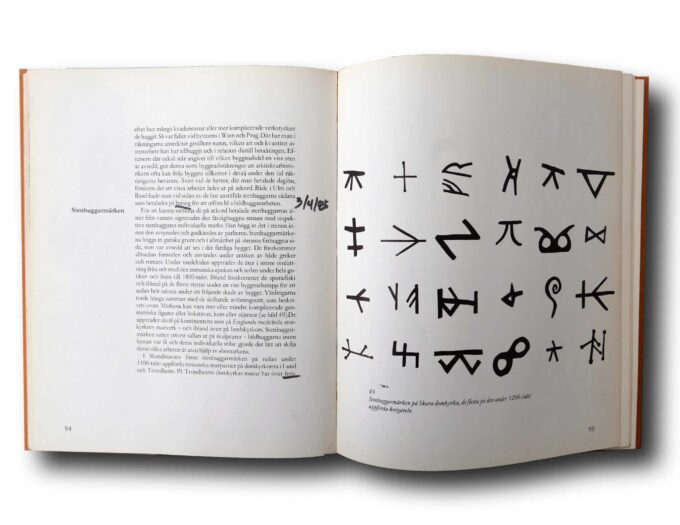 efter hur många kvaderstenar eller mer komplicerade verkstycken
de huggit. Så var fallet vid hyttorna i Wien och Prag. Där har man i
räkningarna antecknat gesällens namn, vilken art och kvantitet av
stenarbete han har tillhuggit och i relation därtill betalningen. Ef-
tersom där också står angivet till vilken byggnadsdel en viss sten
är avsedd, gör denna sorts byggnadsräkningar att arkitekturhisto-
rikern ofta kan följa byggets tillkomst i detalj under den tid räk-
ningarna bevarats. Även vid de hyttor, där man betalade daglön,
förekom det att vissa arbeten lades ut på ackord. Både i Ulm och
Basel hade man vid sidan av de fast anställda stenhuggarna sådana
som betalades på beting för att utföra bl a bildhuggararbeten.
3/4/85
Stenhuggarmärken
För att kunna särskilja de på ackord betalade stenhuggarnas in-
satser från varann signerades den färdighuggna stenen med respek-
tive stenhuggares individuella märke. Han högg in det i stenen in-
nan den avsynades och godkändes av parlieren. Stenhuggarmärkena
höggs in ganska grunt och i allmänhet på stenens finhuggna si-
da, som var avsedd att ses i det färdiga bygget. De förekommer
alltsedan forntiden och användes under antiken av både greker
och romare. Under medeltiden uppträder de åter i större omfatt-
ning från och med den romanska epoken och sedan under hela go-
tiken och fram till 1800-talet. Ibland förekommer de sporadiskt
och ibland på de flesta stenar under en viss byggnadsetapp för att
sedan helt saknas under ett följande skede av bygget. Växlingarna
torde hänga samman med de skiftande avlöningssätt, som beskri-
vits ovan. Märkena kan vara mer eller mindre komplicerade geo-
metriska figurer eller bokstäver, kors eller stjärnor [se bild 49]. De
uppträder såväl på kontinentens som på Englands medeltida stor-
kyrkors murverk – och ibland även på landskyrkorn. Stenhuggar-
märken sattes annars sällan ut på skulpturer – bildhuggarna inom
hyttan var få och deras individuella stilar gjorde det lätt att skilja
deras olika arbeten åt utan hjälp av »bomärken«.
I Skandinavien finns stenhuggarmärken på redan under
1100-talet uppförda romanska murpartier på domkyrkorna i Lund
och Trondheim. På Trondheims domkyrkas murar har över fem-
94
49
Stenhuggarmärken på Skara domkyrka, de flesta på den under 1200-talet
uppförda korgaveln.
95